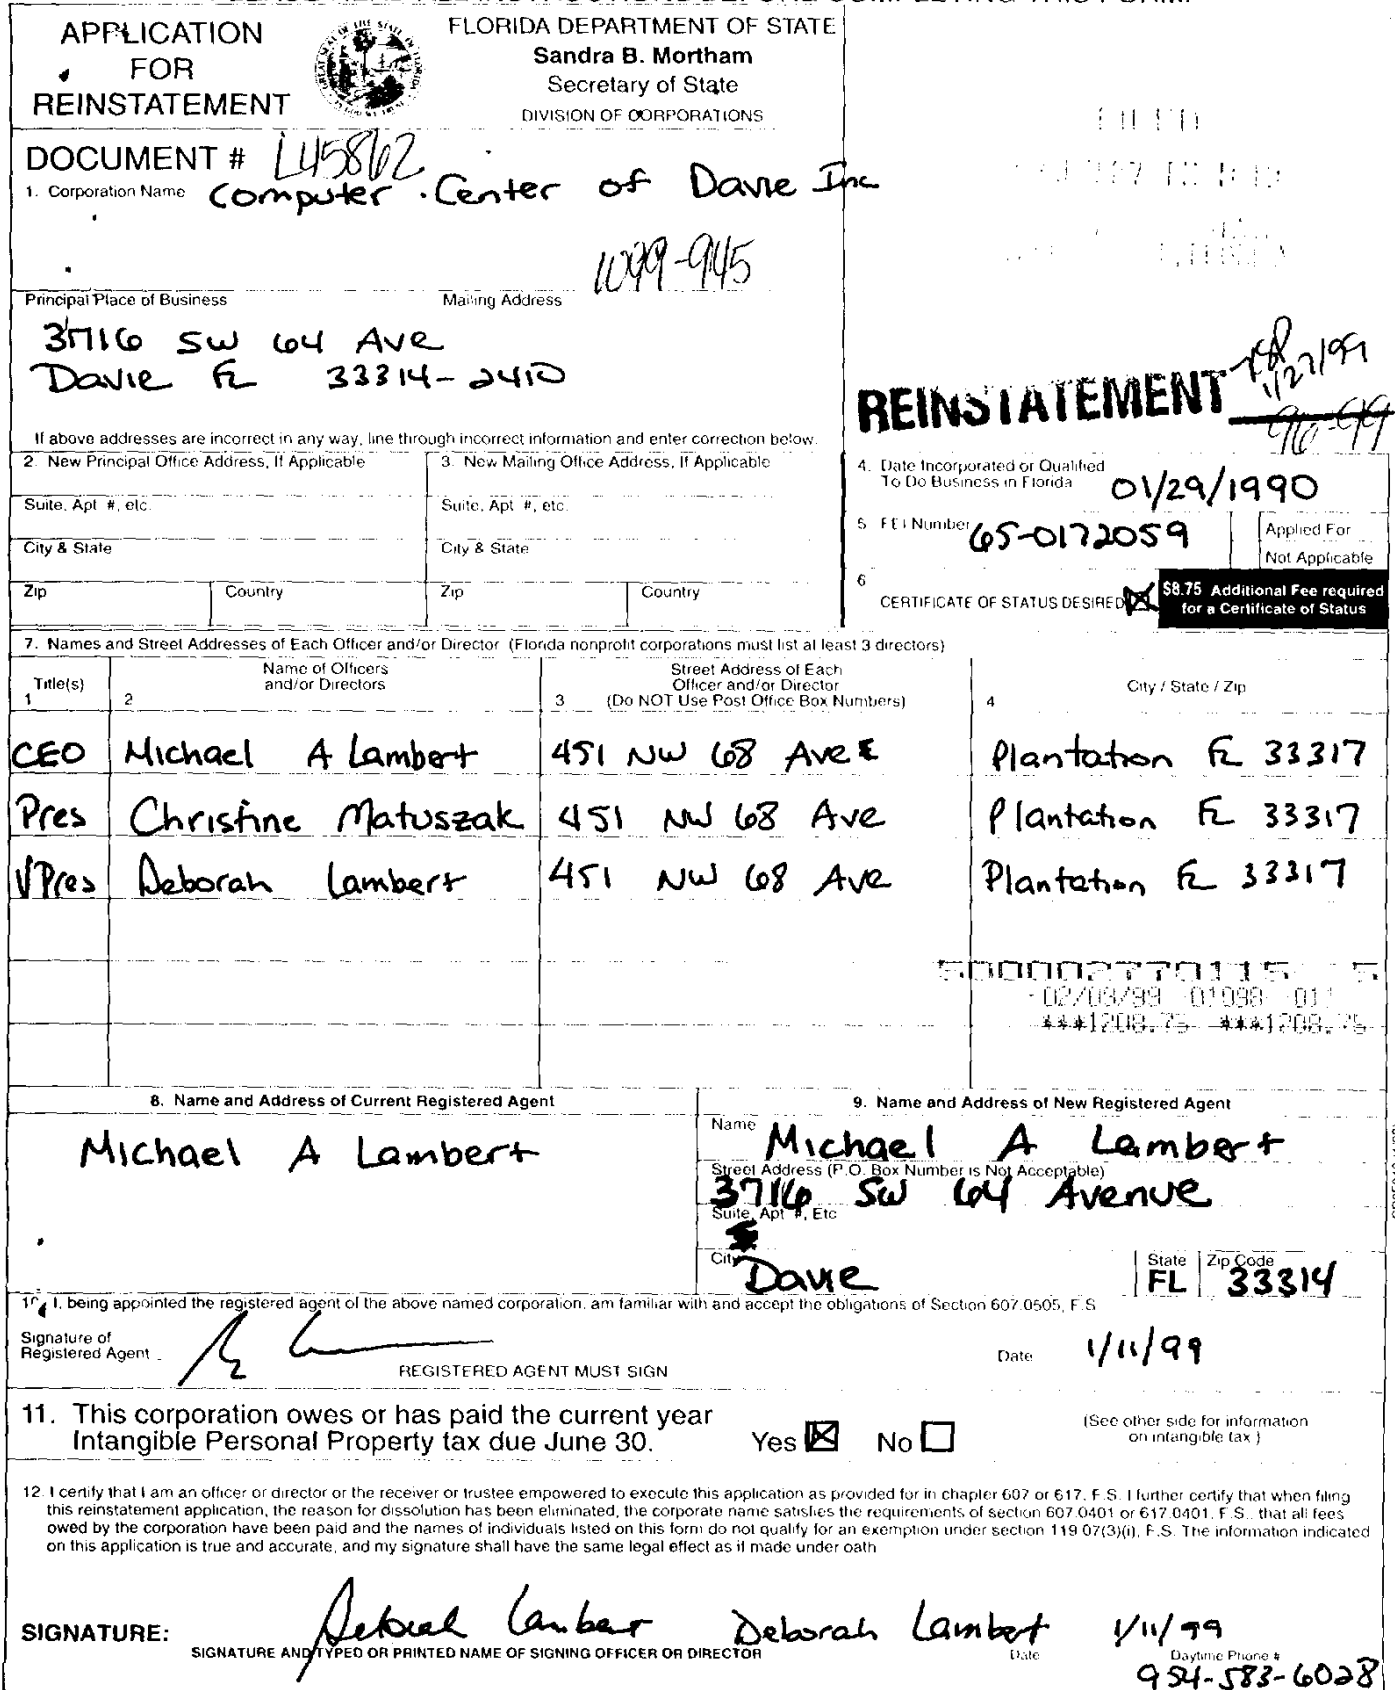 APPLICATION
FOR
REINSTATEMENT
FLORIDA DEPARTMENT OF STATE
Sandra B. Mortham
Secretary of State
DIVISION OF CORPORATIONS
DOCUMENT # L45862
1. Corporation Name Computer Center of Davie Inc
1099-945
Principal Place of Business
Mailing Address
3716 SW 64 Ave
Davie FL 33314-2410
REINSTATEMENT
1/27/99
96-99
If above addresses are incorrect in any way, line through incorrect information and enter correction below.
2. New Principal Office Address, If Applicable
3. New Mailing Office Address, If Applicable
Suite, Apt #, etc.
Suite, Apt #, etc.
City & State
City & State
Zip
Country
Zip
Country
4. Date Incorporated or Qualified
To Do Business in Florida 01/29/1990
5 FEI Number 65-0172059
Applied For
Not Applicable
6
CERTIFICATE OF STATUS DESIRED
$8.75 Additional Fee required
for a Certificate of Status
7. Names and Street Addresses of Each Officer and/or Director (Florida nonprofit corporations must list at least 3 directors)
Title(s)
1
Name of Officers
and/or Directors
2
Street Address of Each
Officer and/or Director
3 (Do NOT Use Post Office Box Numbers)
City / State / Zip
4
CEO Michael A Lambert 451 NW 68 Ave Plantation FL 33317
Pres Christine Matuszak 451 NW 68 Ave Plantation FL 33317
VPres Deborah Lambert 451 NW 68 Ave Plantation FL 33317
500002770115 5
02/03/99 01098 011
***1208.75 ***1208.75
8. Name and Address of Current Registered Agent
Michael A Lambert
9. Name and Address of New Registered Agent
Name Michael A Lambert
Street Address (P.O. Box Number is Not Acceptable)
3716 SW 64 Avenue
Suite, Apt #, Etc
City Davie
State
FL
Zip Code
33314
10. I, being appointed the registered agent of the above named corporation, am familiar with and accept the obligations of Section 607.0505, F.S
Signature of
Registered Agent
REGISTERED AGENT MUST SIGN
Date 1/11/99
11. This corporation owes or has paid the current year
Intangible Personal Property tax due June 30.
Yes
No
(See other side for information
on intangible tax )
12. I certify that I am an officer or director or the receiver or trustee empowered to execute this application as provided for in chapter 607 or 617, F.S. I further certify that when filing
this reinstatement application, the reason for dissolution has been eliminated, the corporate name satisfies the requirements of section 607.0401 or 617.0401, F.S., that all fees
owed by the corporation have been paid and the names of individuals listed on this form do not qualify for an exemption under section 119.07(3)(i), F.S. The information indicated
on this application is true and accurate, and my signature shall have the same legal effect as if made under oath
SIGNATURE: Deborah Lambert Deborah Lambert 1/11/99
SIGNATURE AND TYPED OR PRINTED NAME OF SIGNING OFFICER OR DIRECTOR
Date
Daytime Phone #
954-583-6028